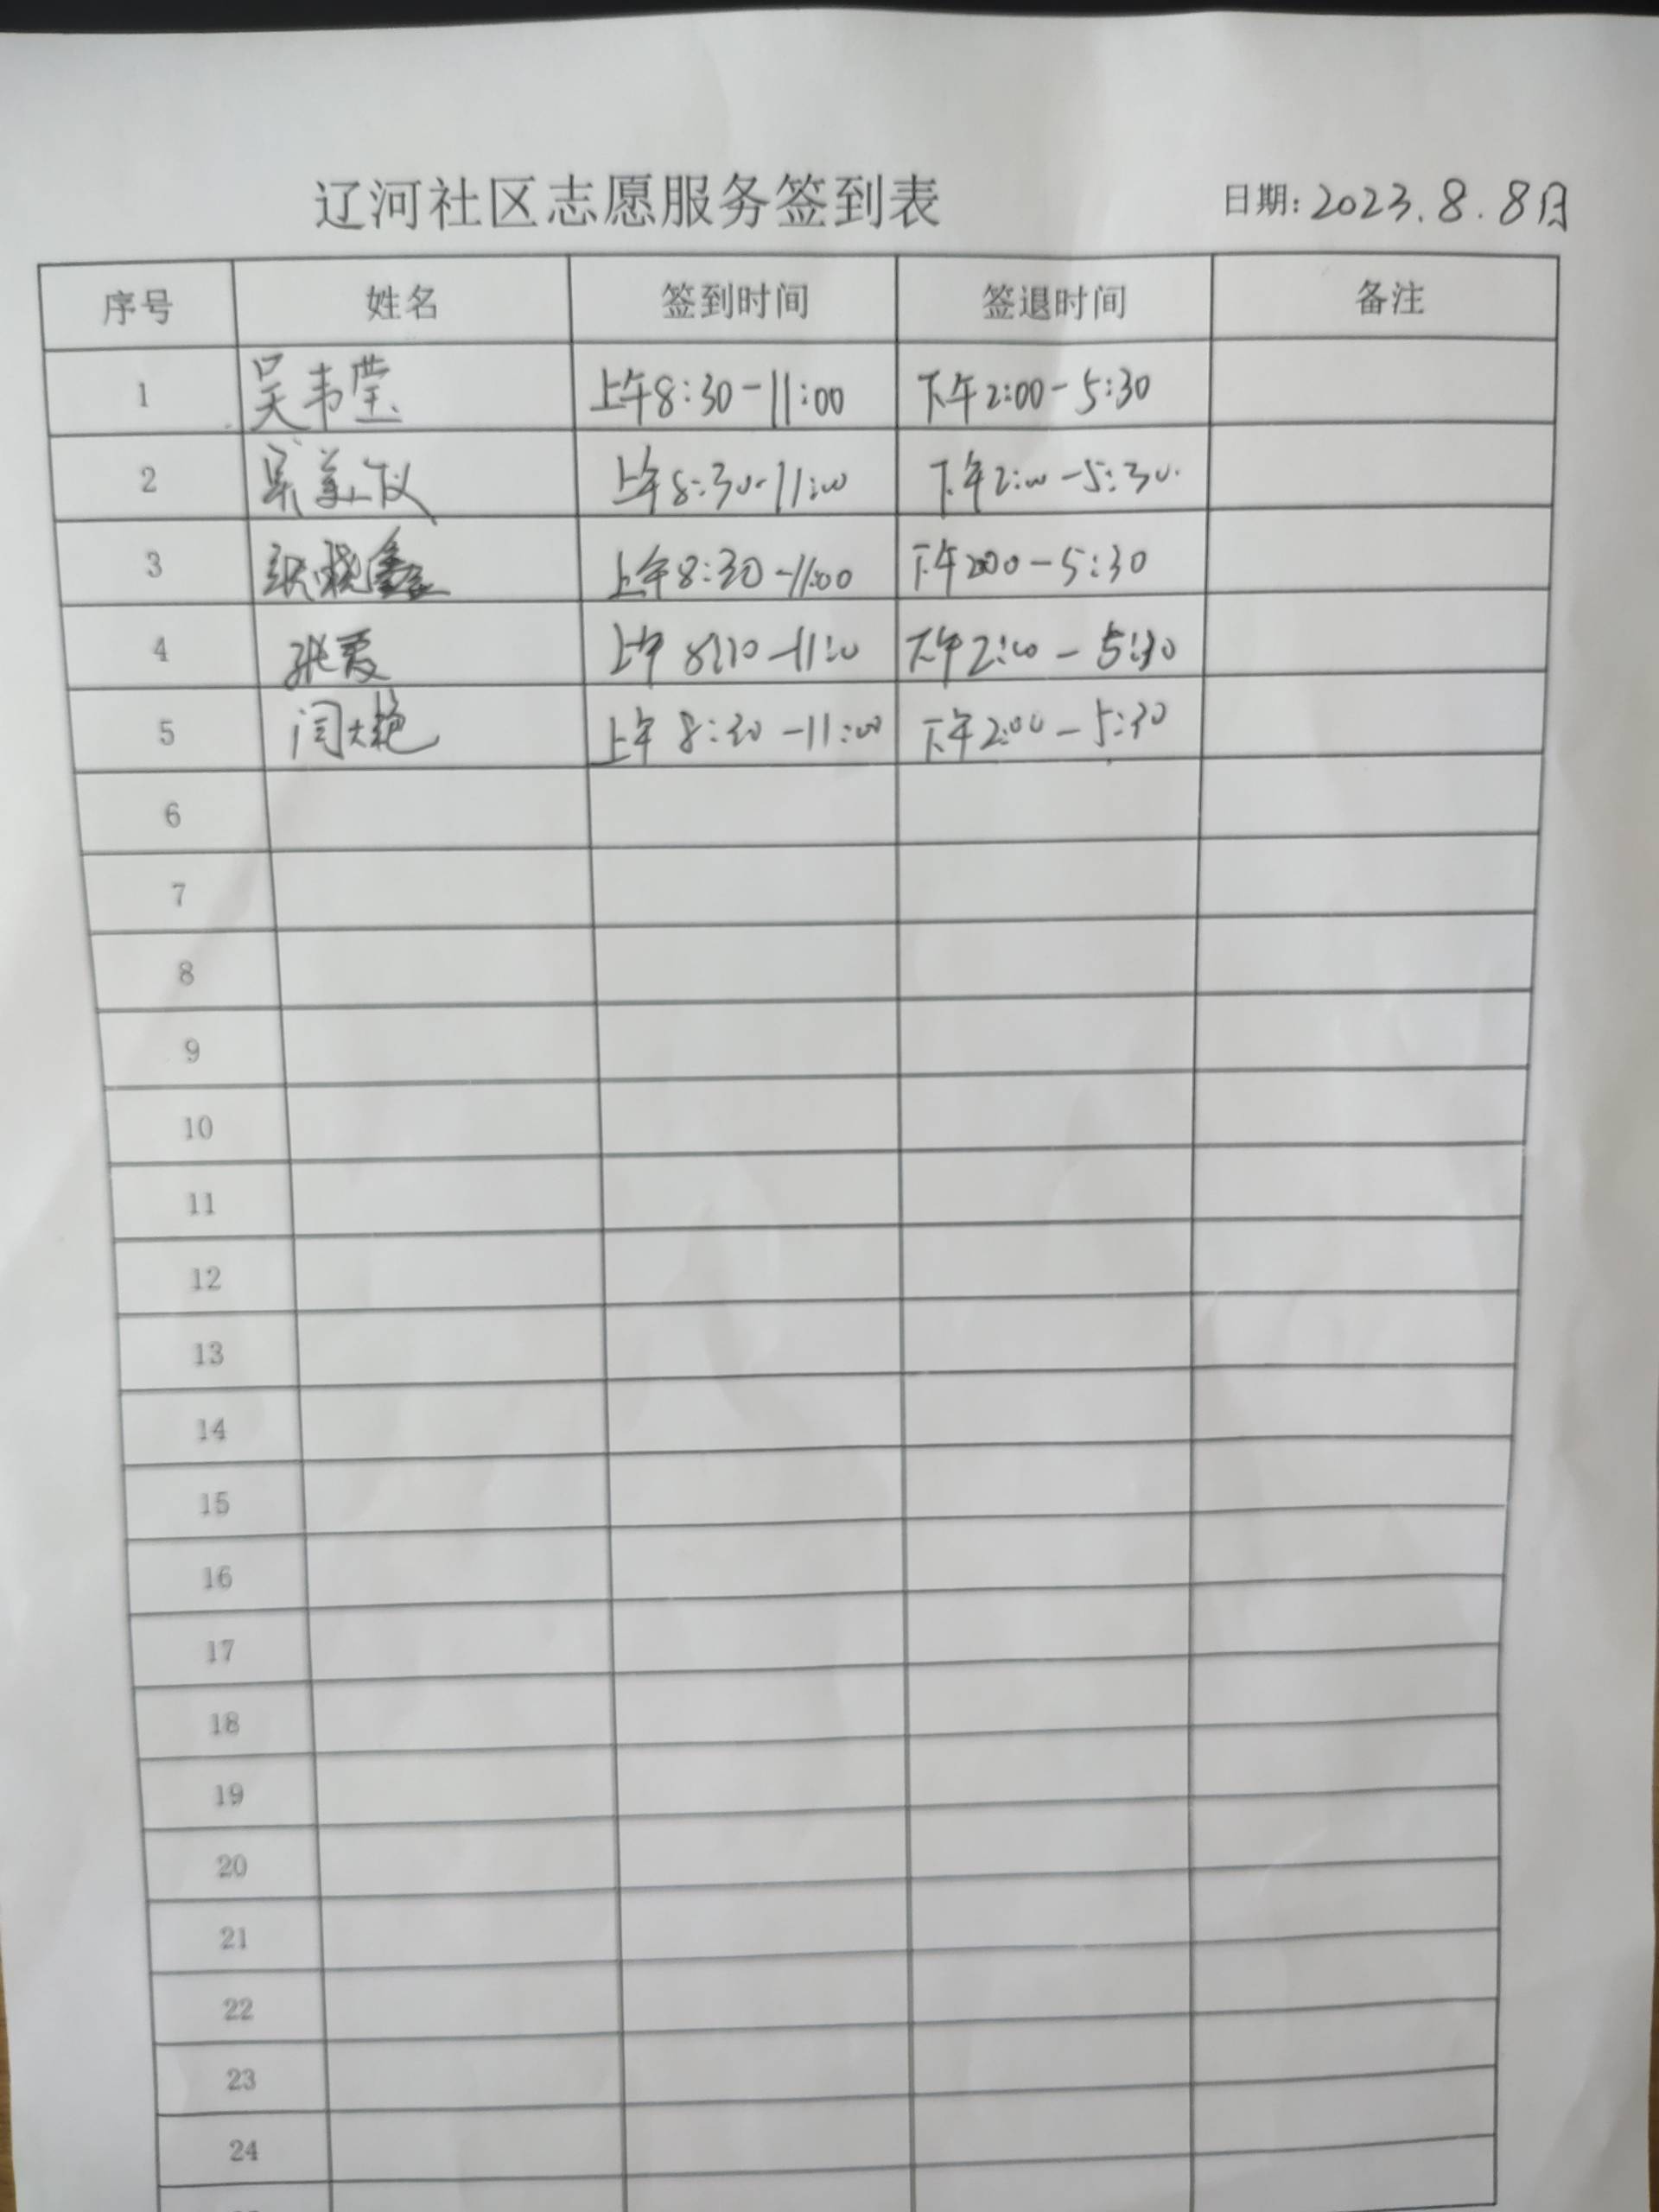 辽河社区志愿服务签到表 日期: 2023.8.8日
序号 姓名 签到时间 签退时间 备注
1 吴韦莹 上午8:30-11:00 下午2:00-5:30
2 吴美仪 上午8:30-11:00 下午2:00-5:30.
3 张晓鑫 上午8:30-11:00 下午2:00-5:30
4 张爱 上午 8:30-11:00 下午2:00-5:30
5 闫大艳 上午 8:30-11:00 下午2:00-5:30
6
7
8
9
10
11
12
13
14
15
16
17
18
19
20
21
22
23
24